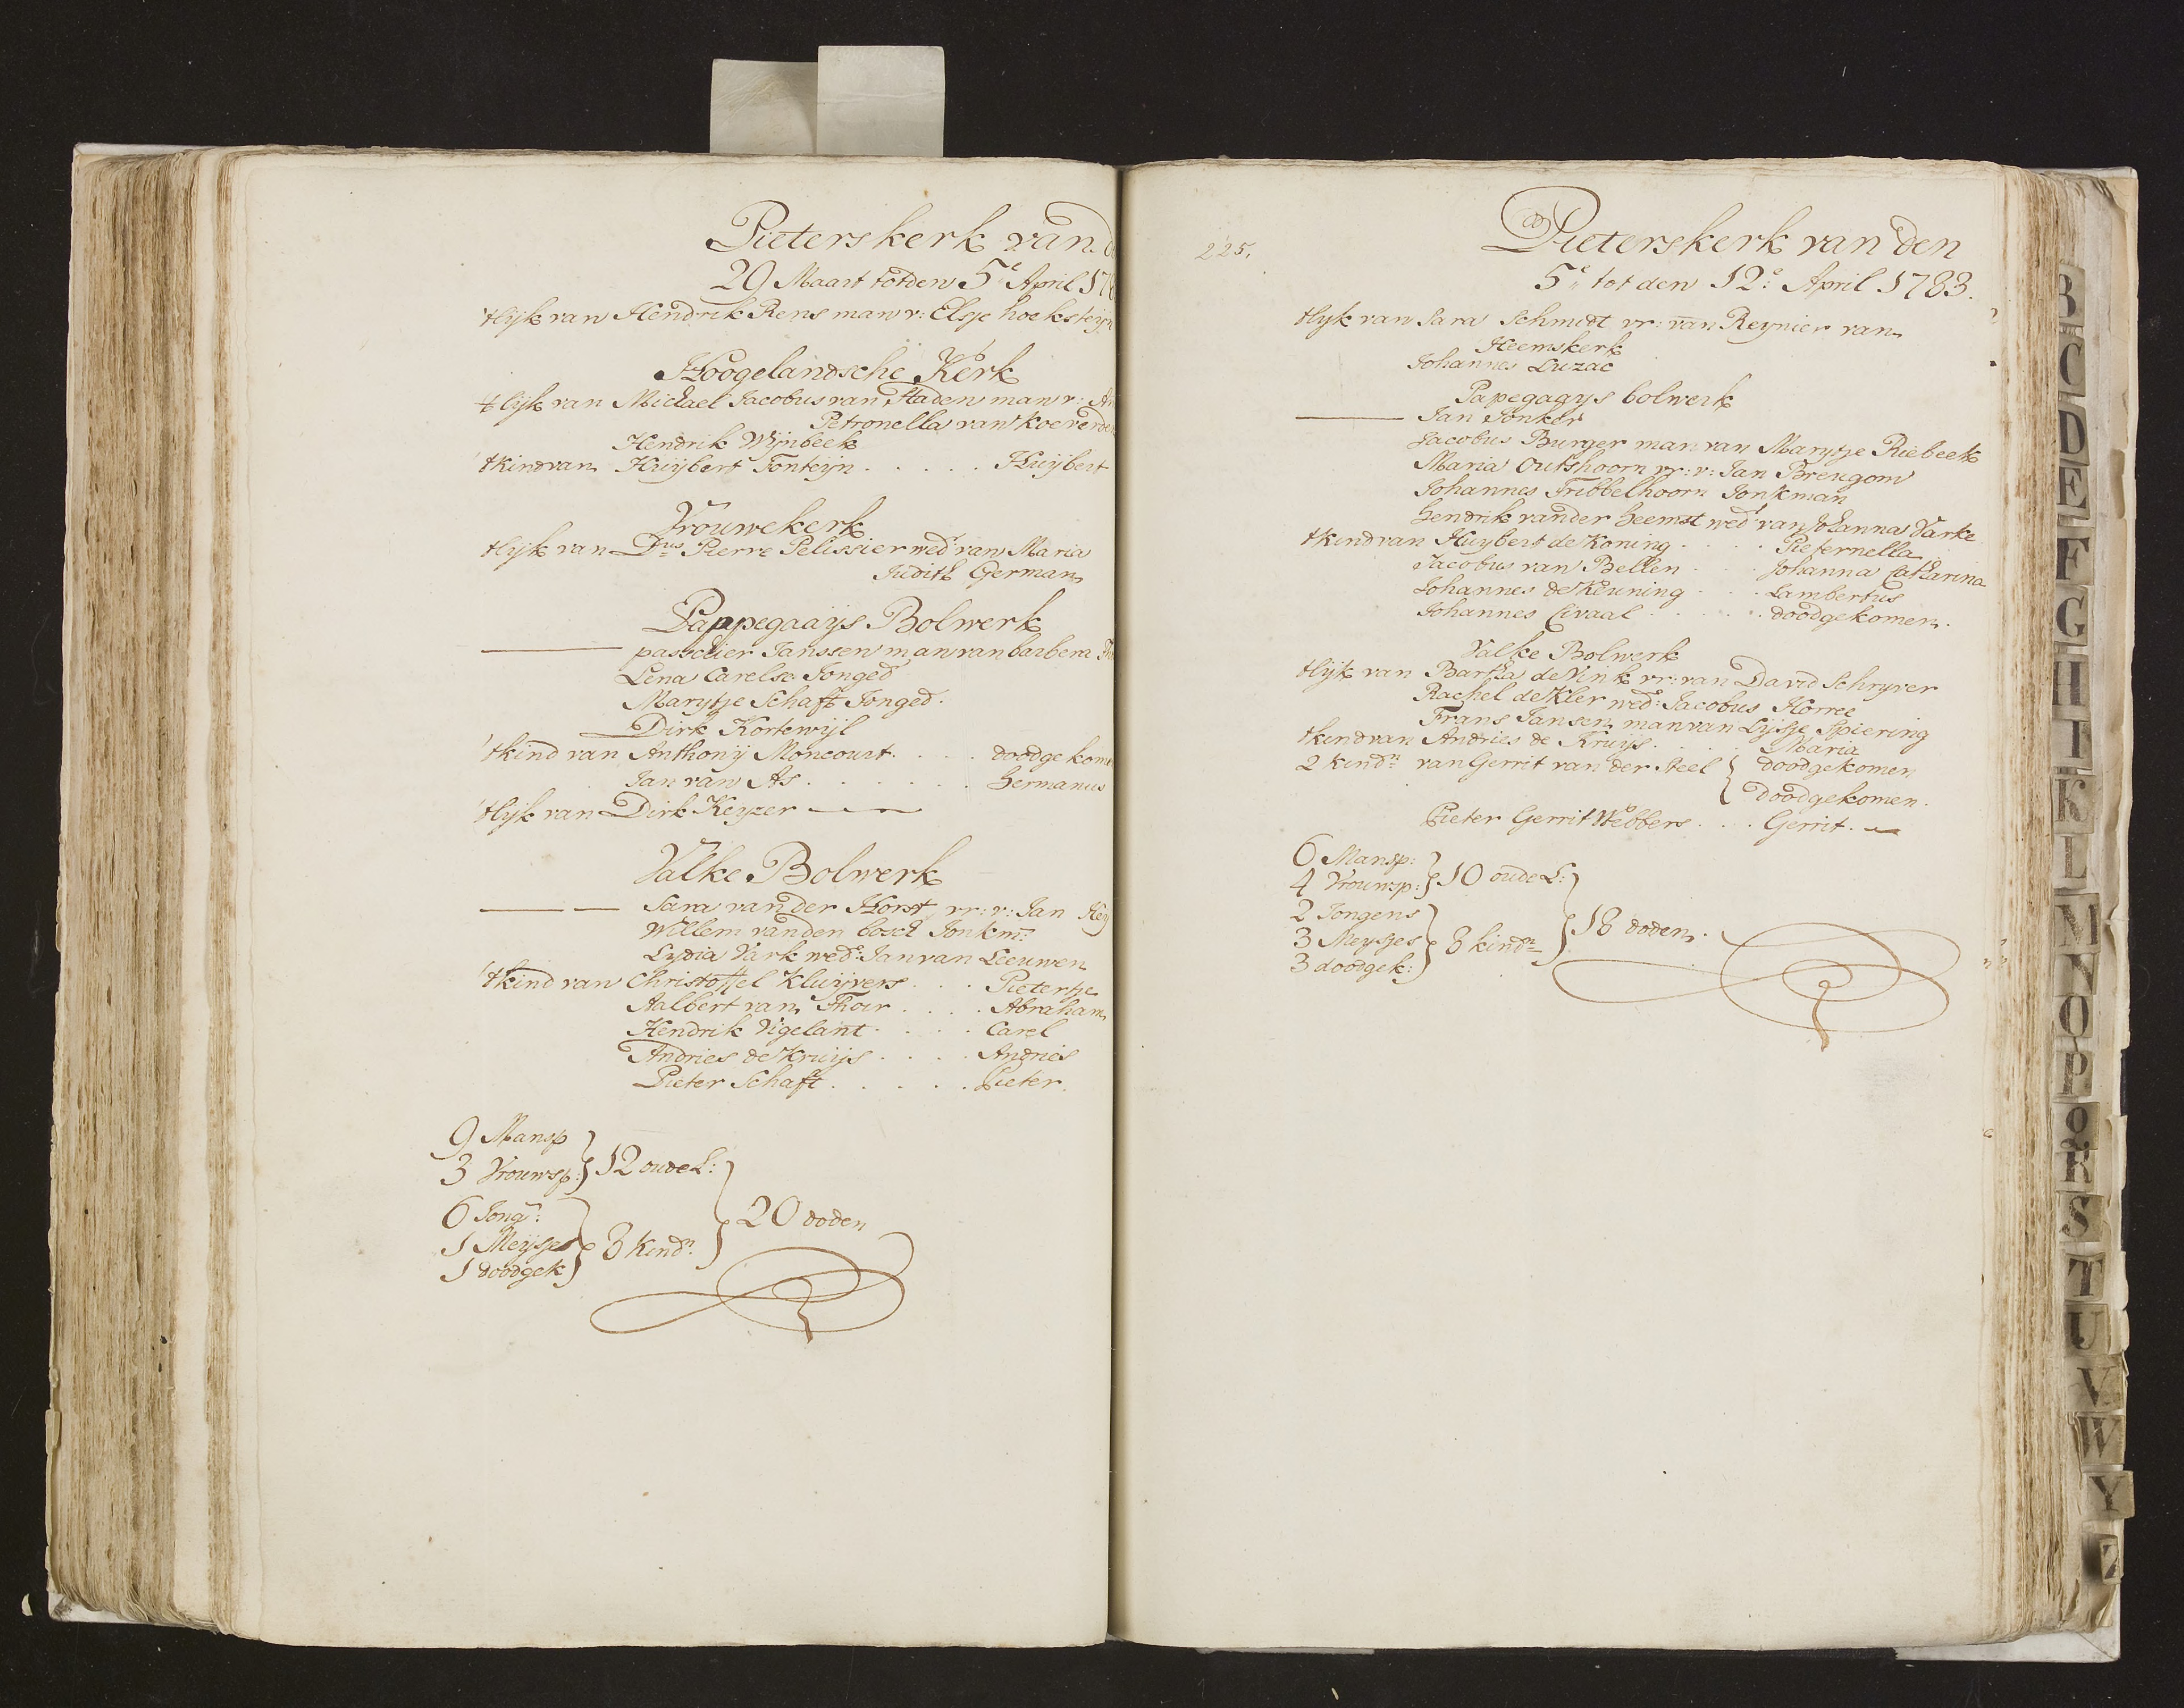 Pieterskerk van
29 Maart tot den 5e April 17
tlijk van Hendrik Rens man v: Elsje hoeksteijn
Hoogelandsche Kerk
tlijk van Michael Jacobus van Staden man v:
Petronella van Koeverden
Hendrik Wijnbeek
tkind van Huijbert Fonteijn . . . . . Huijbert
Vrouwekerk
tlijk van Dus Pierre Pelissier wedr van Maria
Judith German
Pappegaaijs Bolwerk
passchier Janssen man van barbera
Lena Carelse Jonged
Marytje Schaft Jonged.
Dirk Kortewijl
tkind van Anthonij Moncourt . . . . doodgekome
Jan van As . . . . . . Hermanus
tlijk van Dirk Keyzer
Valke Bolwerk
Sara van der Horst vr: v: Jan Hey
Willem vanden bosch Jonkm:
Lydia Vark wede: Jan van Leeuwen
tkind van Christoffel Kluijvers . . . Pietertje
Aalbert van Thoir . . . . Abraham
Hendrik Vigelant . . . . Carel
Andries de Kruijs . . . . Andries
Pieter Schaft . . . . . Pieter.
9 Mansp
3 Vrouwsp: } 12 oude L:
6 Jong:
1 Meijsjes } 8 kindn. } 20 doden
1 doodgek
225.
Pieterskerk van den
5e tot den 12e April 1783.
tlyk van Sara Schmidt vr: van Reynier van
Heemskerk
Johannes Luzac
Papegaays bolwerk
Jan Jonker
Jacobus Burger man van Marytje Riebeek
Maria Outshoorn vr: v: Jan Brengom
Johannes Tribbelhoorn Jonkman
Hendrik vander heemst wedr van Johanna Varke
tkind van Huybert de Koning . . . . Pieternella
Jacobus van Bellen . . . Johanna Catharina
Johannes de Keuning . . . Lambertus
Johannes Civaal . . . . . doodgekomen.
Valke Bolwerk
tlijk van Bartha de Vink vr: van David Schryver
Rachel de Kler wede: Jacobus Horree
Frans Jansen man van Lijsje Spiering
tkind van Andries de Kruijs . . . . Maria
2 kindn van Gerrit van der Steel { doodgekomen
doodgekomen.
Pieter Gerrit Webbers . . . Gerrit.
6 Mansp:
4 Vrouwsp: } 10 oude L:
2 Jongens
3 Meysjes } 8 kindn } 18 doden.
3 doodgek:
B
C
D
E
F
G
H
I
K
L
M
N
O
P
Q
R
S
T
U
V
W
Y
Z